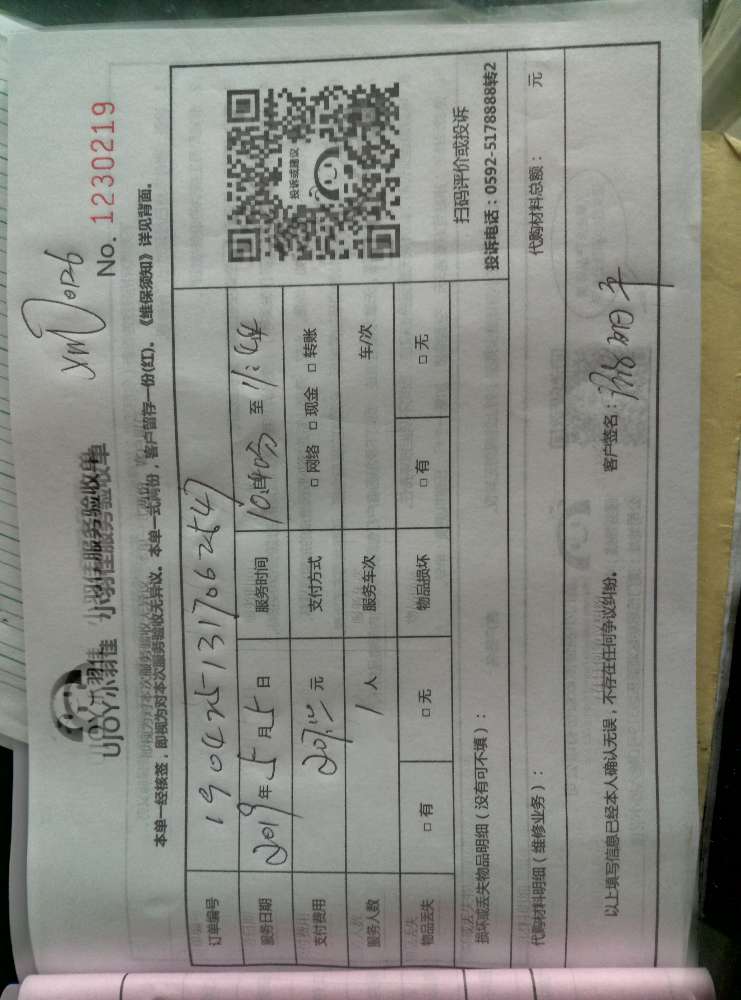 UJOY小羽佳 小羽佳服务验收单
No. 1230219
本单一经核签，即视为对本次服务验收无异议。本单一式两份，客户留存一份(红)。《维保须知》详见背面。
订单编号 1904251317062547
服务日期 2019年5月5日 服务时间 至 11:44
支付费用 元 支付方式 □ 网络 □ 现金 □ 转账
服务人数 1人 服务车次 车/次
物品丢失 □ 有 □ 无 物品损坏 □ 有 □ 无
投诉或建议
扫码评价或投诉
投诉电话：0592-5178888转2
损坏或丢失物品明细（没有可不填）：
代购材料明细（维修业务）： 代购材料总额： 元
以上填写信息已经本人确认无误，不存在任何争议纠纷。 客户签名：